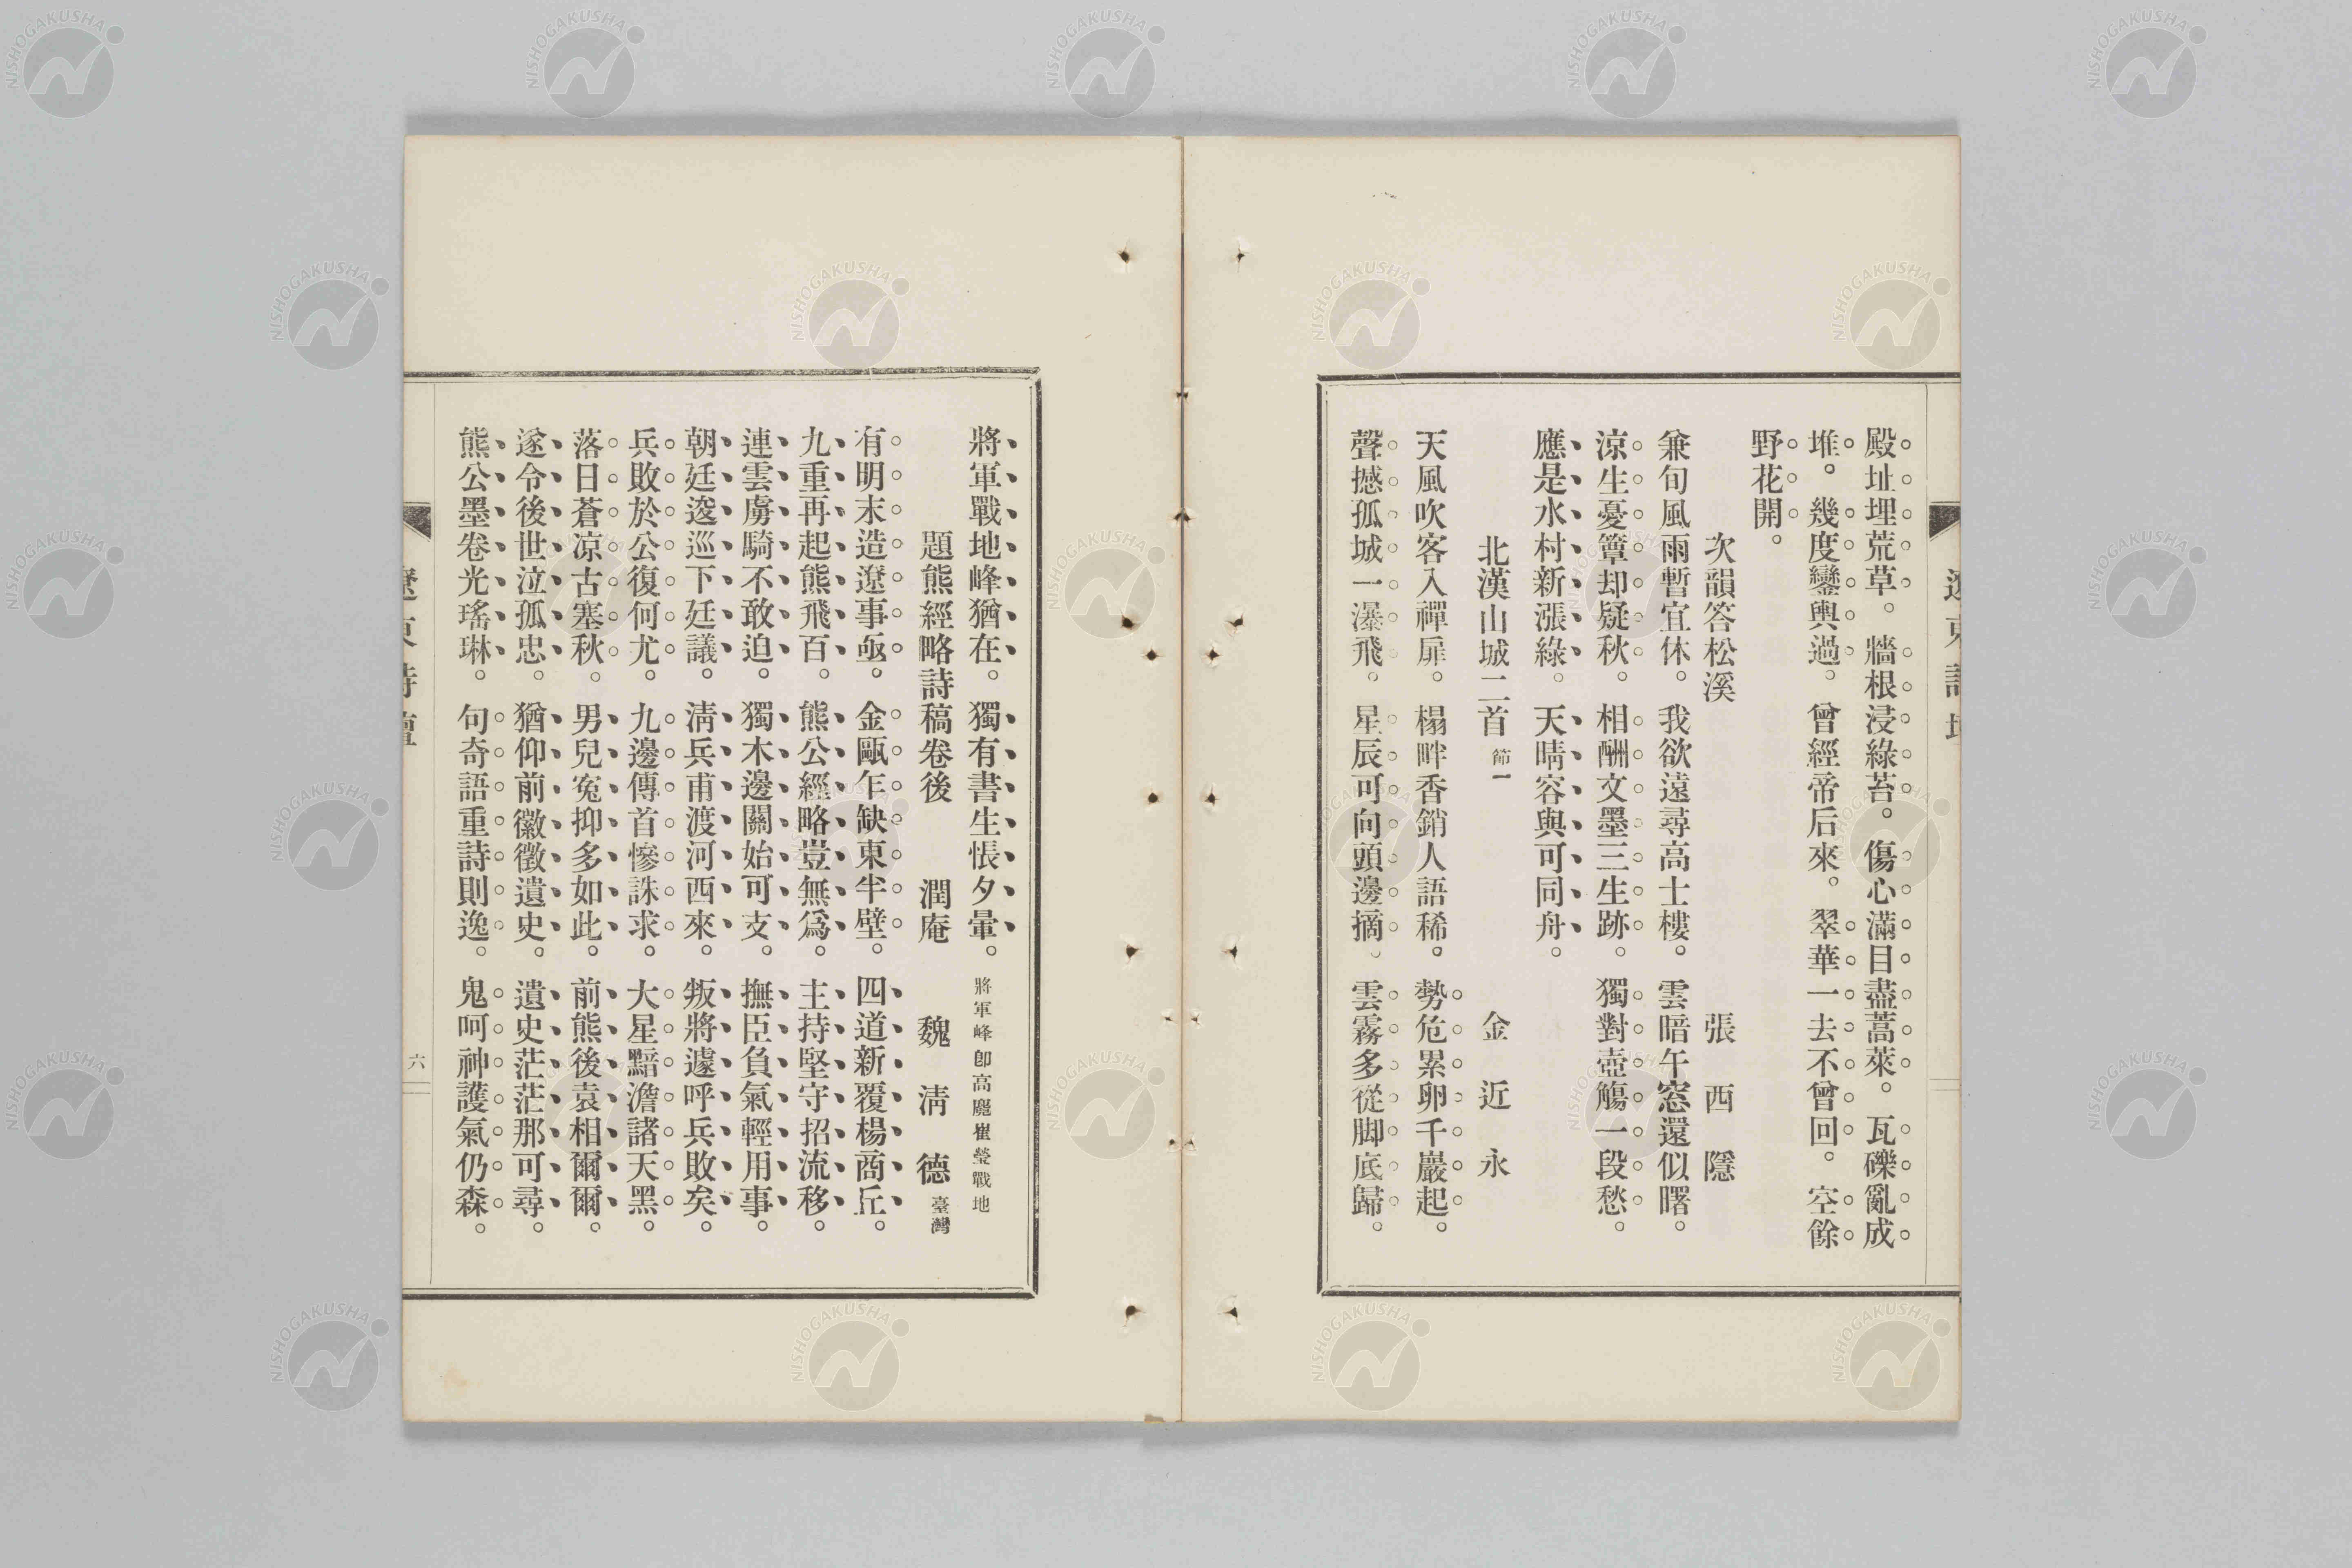 殿址埋荒草。牆根浸綠苔。傷心滿目盡蒿萊。瓦礫亂成
堆。幾度鑾輿過。曾經帝后來。翠華一去不曾回。空餘
野花開。
次韻答松溪　張西隱
兼旬風雨暫宜休。我欲遠尋高士樓。雲暗午窓還似曙。
涼生憂簟却疑秋。相酬文墨三生跡。獨對壺觴一段愁。
應是水村新漲綠。天晴容與可同舟。
北漢山城二首 節一　金近永
天風吹客入禪扉。榻畔香銷人語稀。勢危累卵千巖起。
聲撼孤城一瀑飛。星辰可向頭邊摘。雲霧多從脚底歸。
遼東詩壇
將軍戰地峰猶在。獨有書生悵夕暈。將軍峰卽高龐崔瑩戰地
題熊經略詩稿卷後　潤庵　魏淸德 臺灣
有明末造遼事亟。金甌乍缺東半壁。四道新覆楊商丘。
九重再起熊飛百。熊公經略豈無爲。主持堅守招流移。
連雲虜騎不敢迫。獨木邊關始可支。撫臣負氣輕用事。
朝廷逡巡下廷議。淸兵甫渡河西來。叛將遽呼兵敗矣。
兵敗於公復何尤。九邊傳首慘誅求。大星黯澹諸天黑。
落日蒼凉古塞秋。男兒寃抑多如此。前熊後袁相爾爾。
遂令後世泣孤忠。猶仰前徽徵遺史。遺史茫茫那可尋。
熊公墨卷光瑤琳。句奇語重詩則逸。鬼呵神護氣仍森。
遼東詩壇
六
NISHOGAKUSHA